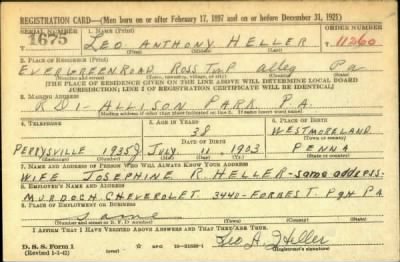 REGISTRATION CARD—(Men born on or after February 17, 1897 and on or before December 31, 1921)
SERIAL NUMBER 1. NAME (Print) ORDER NUMBER
1675 LEO ANTHONY HELLER 11260
(First) (Middle) (Last)
2. PLACE OF RESIDENCE (Print)
EVERGREEN ROAD ROSS TWP alleg Pa
(Number and street) (Town, township, village, or city) (County) (State)
[THE PLACE OF RESIDENCE GIVEN ON THE LINE ABOVE WILL DETERMINE LOCAL BOARD
JURISDICTION; LINE 2 OF REGISTRATION CERTIFICATE WILL BE IDENTICAL]
3. MAILING ADDRESS
R.D.1- ALLISON PARK. PA.
[Mailing address if other than place indicated on line 2. If same insert word same]
4. TELEPHONE 5. AGE IN YEARS 6. PLACE OF BIRTH
38 WESTMORELAND
DATE OF BIRTH (Town or county)
PERRYSVILLE 1935 JULY 11 1903 PENNA
(Exchange) (Number) (Mo.) (Day) (Yr.) (State or country)
7. NAME AND ADDRESS OF PERSON WHO WILL ALWAYS KNOW YOUR ADDRESS
WIFE JOSEPHINE R. HELLER - same address.
8. EMPLOYER'S NAME AND ADDRESS
MURDOCH CHEVROLET 3440-FORBES ST. PGH PA
9. PLACE OF EMPLOYMENT OR BUSINESS
same
(Number and street or R. F. D. number) (Town) (County) (State)
I AFFIRM THAT I HAVE VERIFIED ABOVE ANSWERS AND THAT THEY ARE TRUE.
D. S. S. Form 1
(Revised 1-1-42) (over)
Leo A. Heller
(Registrant's signature)